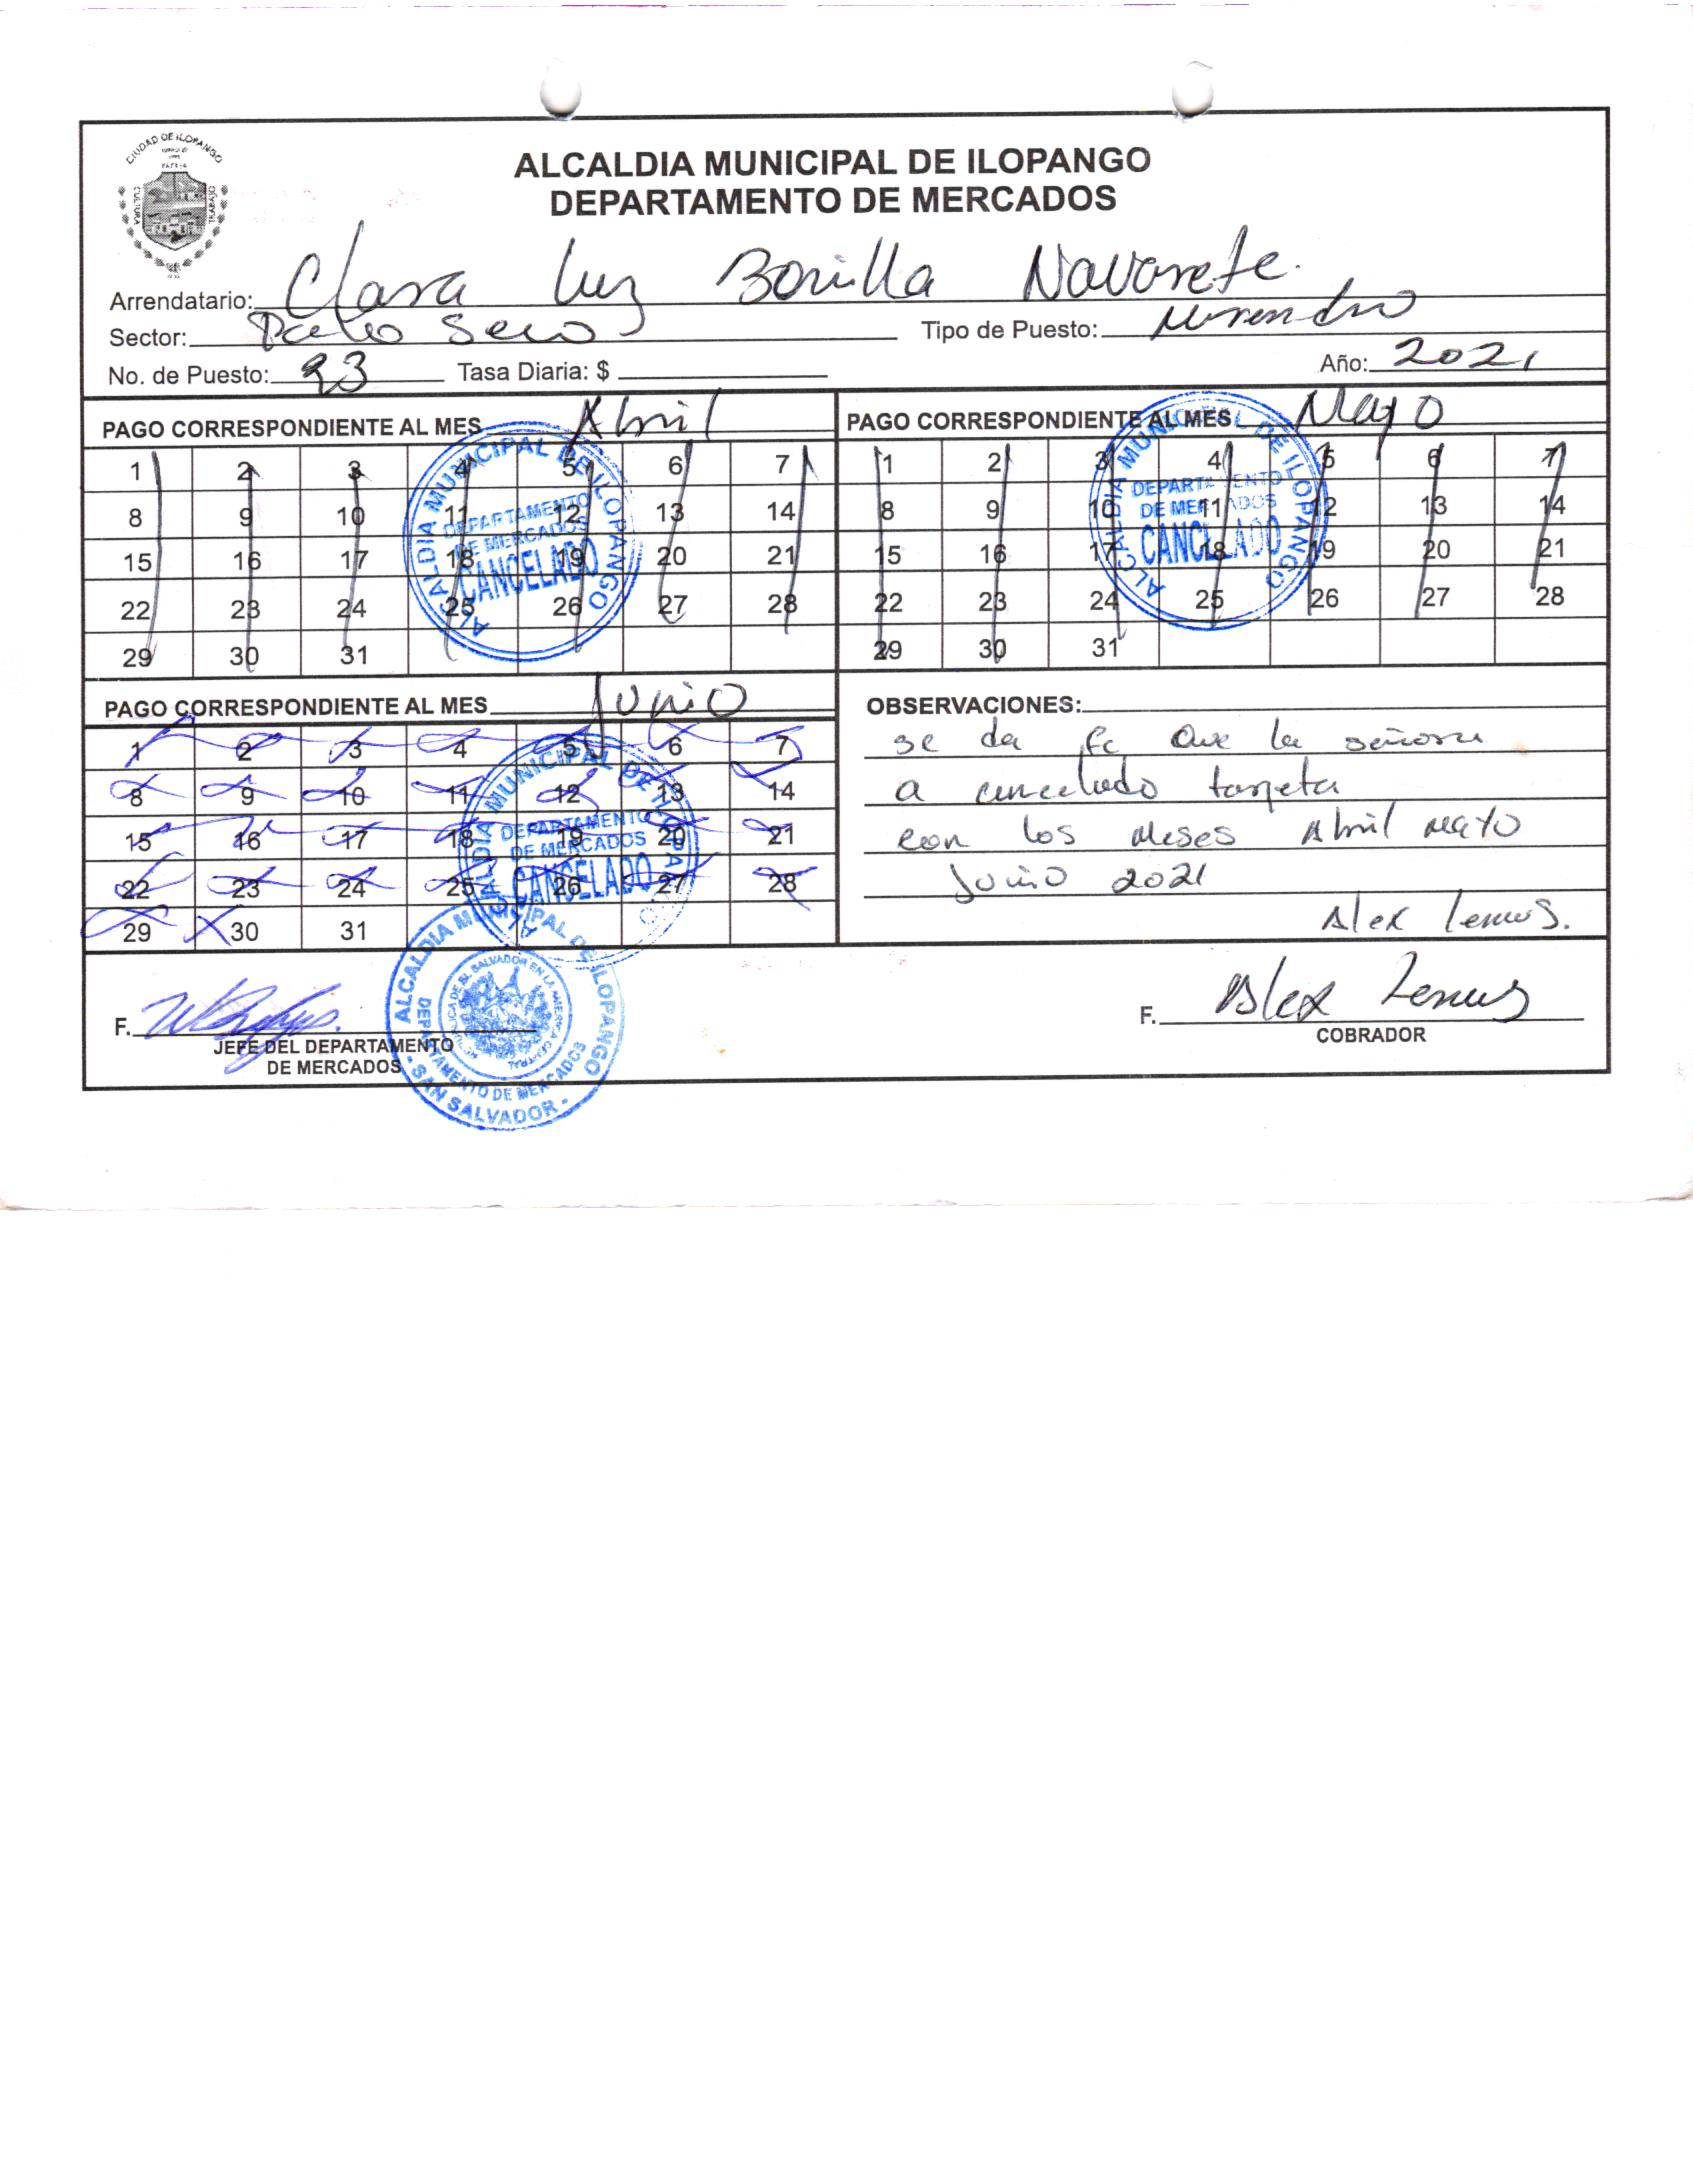 CIUDAD DE ILOPANGO
CULTURA
TRABAJO
ALCALDIA MUNICIPAL DE ILOPANGO
DEPARTAMENTO DE MERCADOS
Arrendatario: Clara Luz Bonilla Navarete.
Sector: Seco Tipo de Puesto:
No. de Puesto: 93 Tasa Diaria: $ Año: 2021
PAGO CORRESPONDIENTE AL MES Abril
1 2 3 4 5 6 7
8 9 10 11 12 13 14
15 16 17 18 19 20 21
22 23 24 25 26 27 28
29 30 31
ALCALDIA MUNICIPAL DE ILOPANGO
DEPARTAMENTO
DE MERCADOS
CANCELADO
PAGO CORRESPONDIENTE AL MES Mayo
1 2 3 4 5 6 7
8 9 10 11 12 13 14
15 16 17 18 19 20 21
22 23 24 25 26 27 28
29 30 31
ALCALDIA MUNICIPAL DE ILOPANGO
DEPARTAMENTO
DE MERCADOS
CANCELADO
PAGO CORRESPONDIENTE AL MES Junio
1 2 3 4 5 6 7
8 9 10 11 12 13 14
15 16 17 18 19 20 21
22 23 24 25 26 27 28
29 30 31
ALCALDIA MUNICIPAL DE ILOPANGO
DEPARTAMENTO
DE MERCADOS
CANCELADO
OBSERVACIONES:
se da fe que la señora
a cancelado tarjeta
con los meses Abril Mayo
Junio 2021
Alex Lemus.
F.
JEFE DEL DEPARTAMENTO
DE MERCADOS
ALCALDIA MUNICIPAL DE ILOPANGO
REPUBLICA DE EL SALVADOR EN LA AMERICA CENTRAL
DEPARTAMENTO DE MERCADOS
- SAN SALVADOR -
F. Alex Lemus
COBRADOR